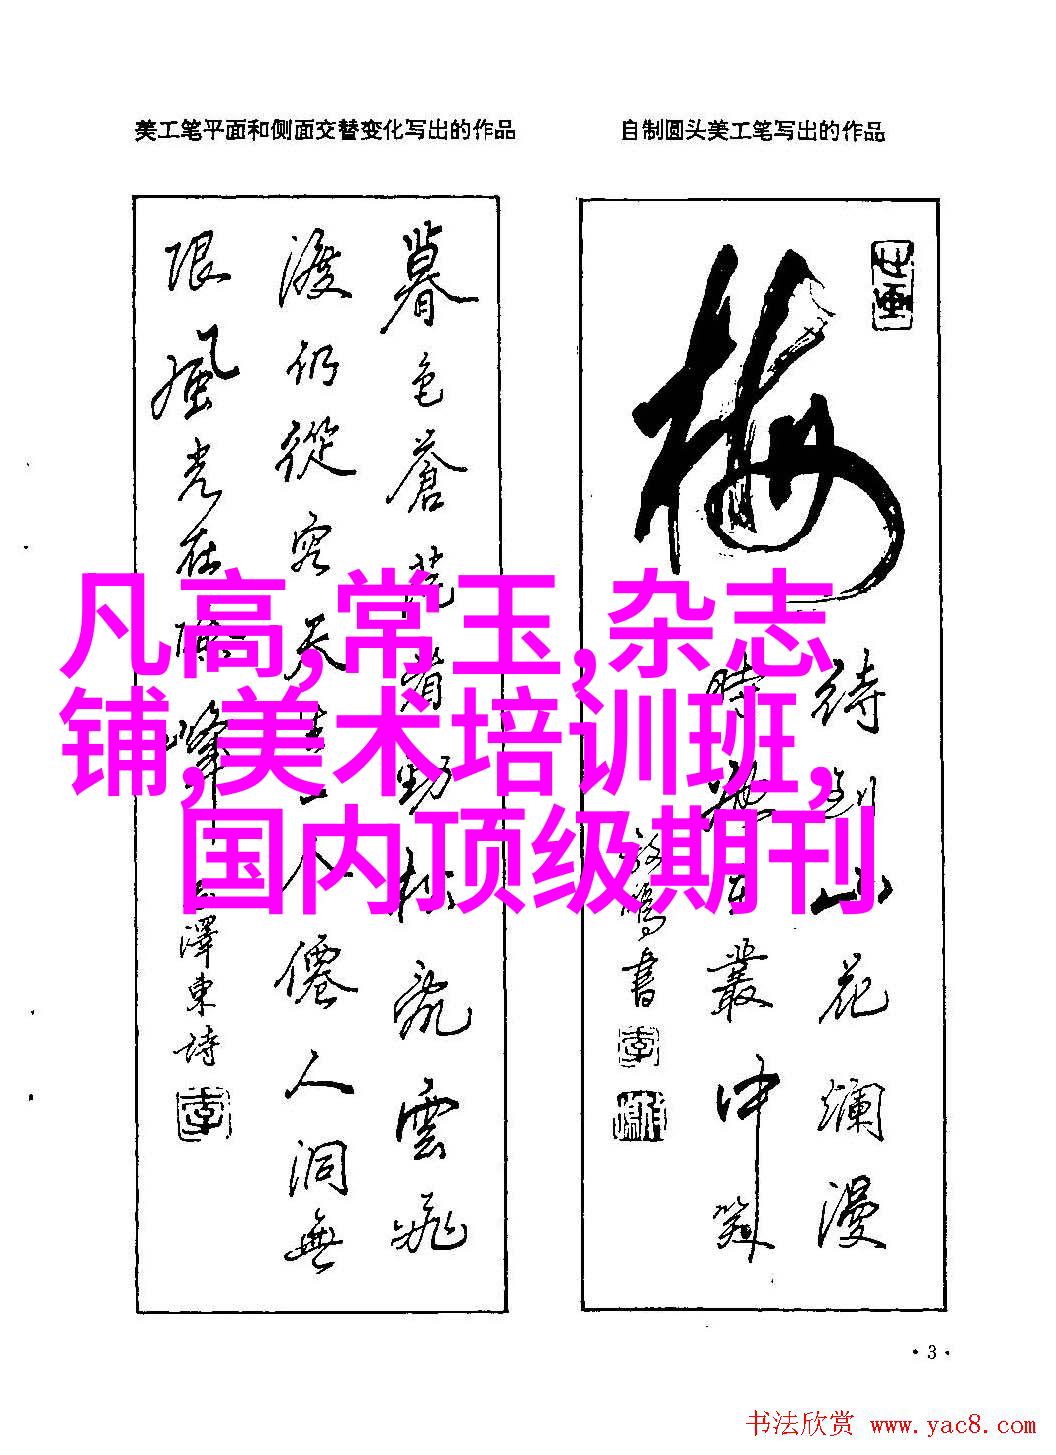 美工笔平面和侧面交替变化写出的作品
自制圆头美工笔写出的作品
暮色苍茫看劲松乱雲飛
渡仍從容天生一个僊人洞無
限風光在險峰
毛澤東詩
梅
待到山花爛漫
時她在叢中笑
書
凡高,常玉,杂志
铺,美术培训班,
国内顶级期刊
·3·
书法欣赏 www.yac8.com